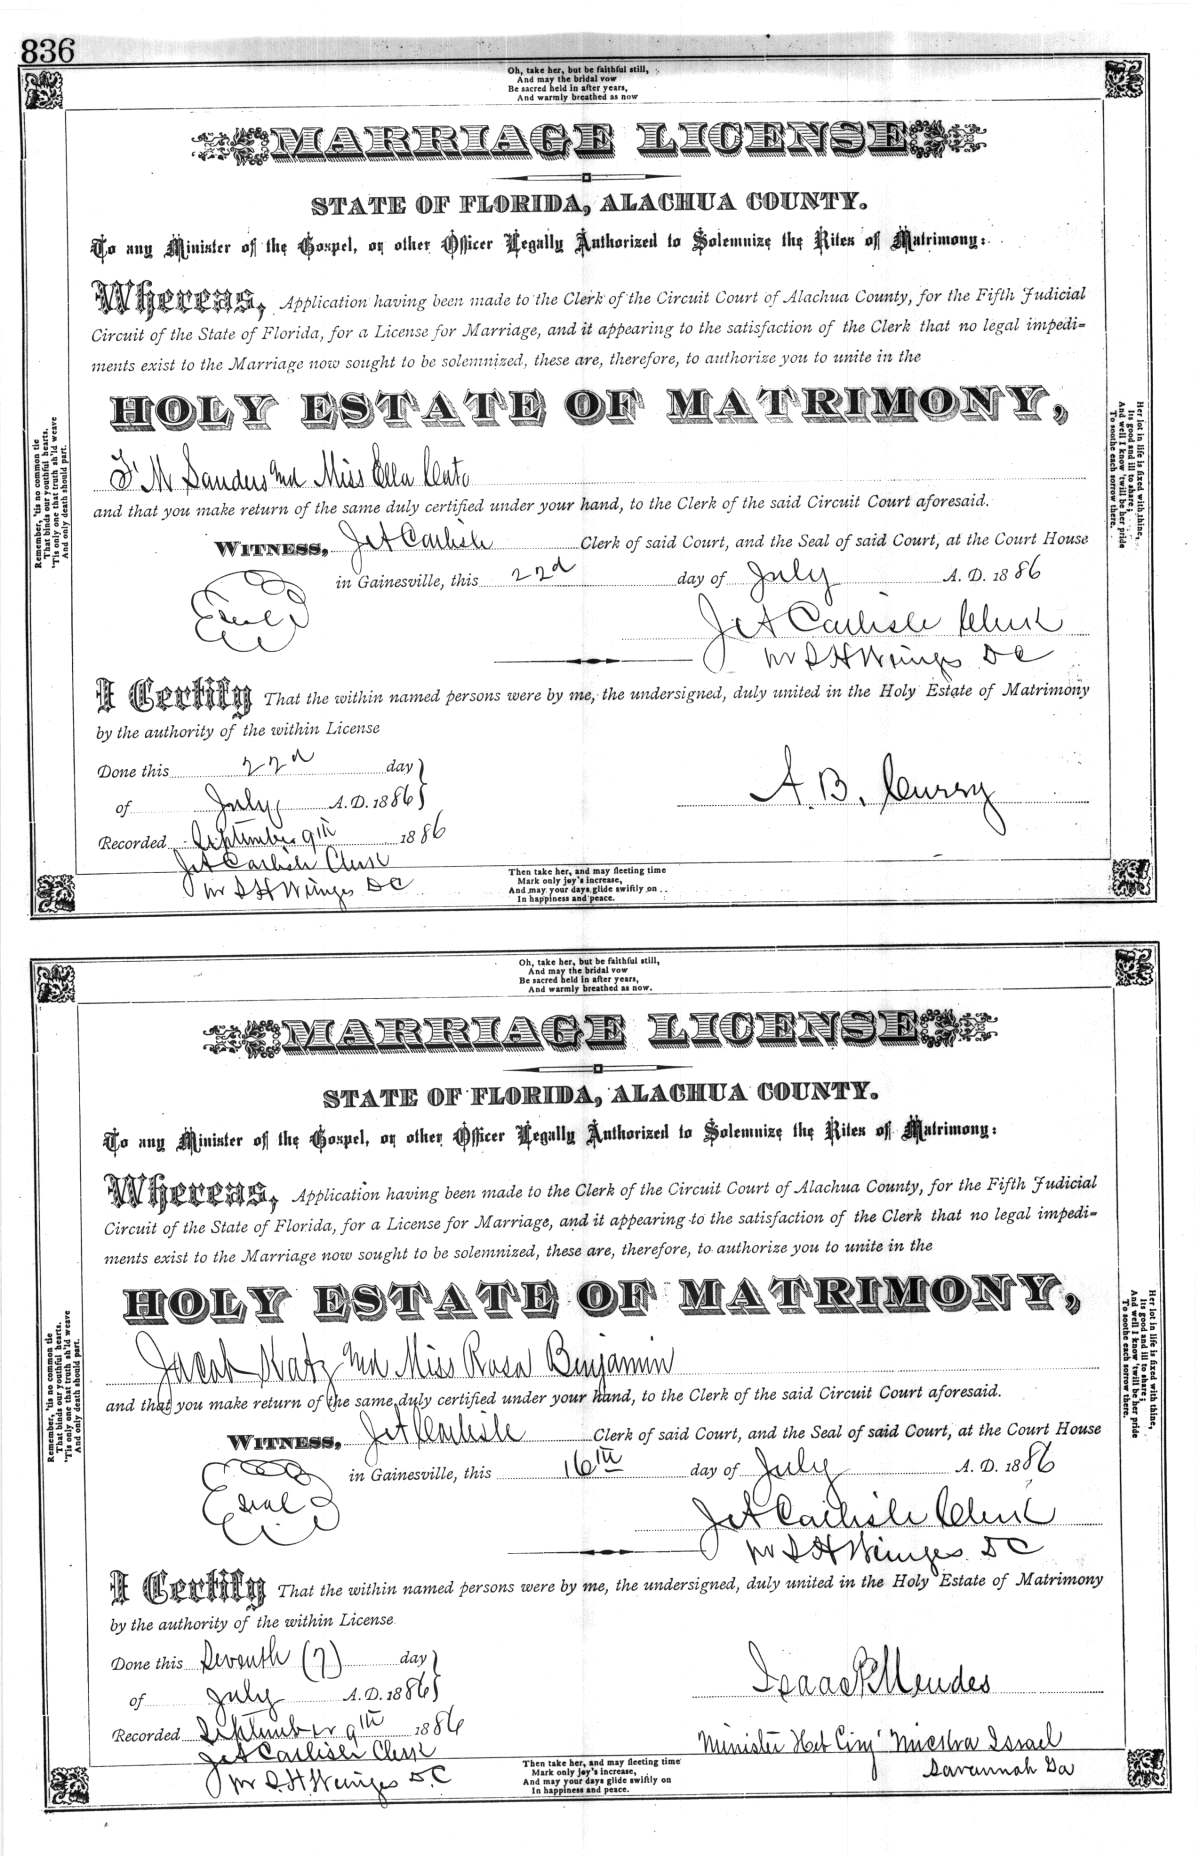 836
Oh, take her, but be faithful still,
And may the bridal vow
Be sacred held in after years,
And warmly breathed as now
MARRIAGE LICENSE
STATE OF FLORIDA, ALACHUA COUNTY.
To any Minister of the Gospel, or other Officer Legally Authorized to Solemnize the Rites of Matrimony:
Whereas, Application having been made to the Clerk of the Circuit Court of Alachua County, for the Fifth Judicial
Circuit of the State of Florida, for a License for Marriage, and it appearing to the satisfaction of the Clerk that no legal impedi-
ments exist to the Marriage now sought to be solemnized, these are, therefore, to authorize you to unite in the
HOLY ESTATE OF MATRIMONY,
F M Sanders and Miss Ella Cato
and that you make return of the same duly certified under your hand, to the Clerk of the said Circuit Court aforesaid.
WITNESS, J A Carlisle Clerk of said Court, and the Seal of said Court, at the Court House
in Gainesville, this 22d day of July A. D. 1886
Seal
J A Carlisle Clerk
pr S H Wienges DC
I Certify That the within named persons were by me, the undersigned, duly united in the Holy Estate of Matrimony
by the authority of the within License
Done this 22d day
of July A. D. 1886
A. B. Curry
Recorded September 9th 1886
J A Carlisle Clerk
pr S H Wienges DC
Remember, 'tis no common tie
That binds our youthful hearts.
'Tis only one that truth sh'ld weave
And only death should part.
Her lot in life is fixed with thine,
Its good and ill to share;
And well I know 'twill be her pride
To soothe each sorrow there.
Then take her, and may fleeting time
Mark only joy's increase,
And may your days glide swiftly on
In happiness and peace.
Oh, take her, but be faithful still,
And may the bridal vow
Be sacred held in after years,
And warmly breathed as now.
MARRIAGE LICENSE
STATE OF FLORIDA, ALACHUA COUNTY.
To any Minister of the Gospel, or other Officer Legally Authorized to Solemnize the Rites of Matrimony:
Whereas, Application having been made to the Clerk of the Circuit Court of Alachua County, for the Fifth Judicial
Circuit of the State of Florida, for a License for Marriage, and it appearing to the satisfaction of the Clerk that no legal impedi-
ments exist to the Marriage now sought to be solemnized, these are, therefore, to authorize you to unite in the
HOLY ESTATE OF MATRIMONY,
Jacob Katz and Miss Rosa Benjamin
and that you make return of the same duly certified under your hand, to the Clerk of the said Circuit Court aforesaid.
WITNESS, J A Carlisle Clerk of said Court, and the Seal of said Court, at the Court House
in Gainesville, this 16th day of July A. D. 1886
Seal
J A Carlisle Clerk
pr S H Wienges DC
I Certify That the within named persons were by me, the undersigned, duly united in the Holy Estate of Matrimony
by the authority of the within License
Done this Seventh (7) day
of July A. D. 1886
Isaac P. Mendes
Recorded September 9th 1886
Minister Heb Cong Mickva Israel
Savannah Ga
J A Carlisle Clerk
pr S H Wienges D.C
Remember, 'tis no common tie
That binds our youthful hearts.
'Tis only one that truth sh'ld weave
And only death should part.
Her lot in life is fixed with thine,
Its good and ill to share;
And well I know 'twill be her pride
To soothe each sorrow there.
Then take her, and may fleeting time
Mark only joy's increase,
And may your days glide swiftly on
In happiness and peace.